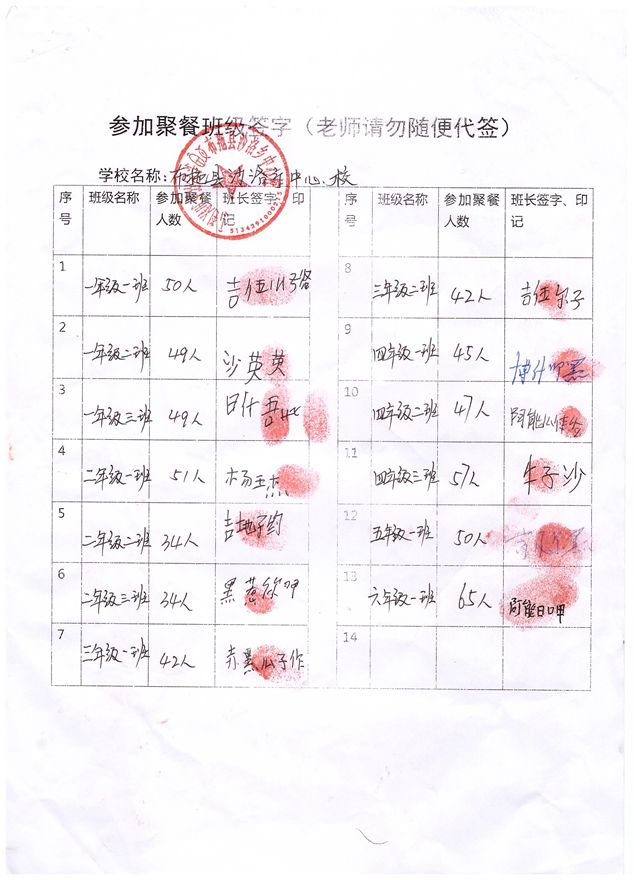 参加聚餐班级签字（老师请勿随便代签）
学校名称：布拖县沙洛乡中心校
序号 班级名称 参加聚餐人数 班长签字、印记
1 一年级一班 50人 吉伍
2 一年级二班 49人 沙英英
3 一年级三班 49人 日什
4 二年级一班 51人 杨玉杰
5 二年级二班 34人 吉地子约
6 二年级三班 34人 黑惹
7 三年级一班 42人 赤黑瓜子作
序号 班级名称 参加聚餐人数 班长签字、印记
8 三年级二班 42人 吉伍尔子
9 四年级一班 45人
10 四年级二班 47人 阿能
11 四年级三班 57人 牛子沙
12 五年级一班 50人
13 六年级一班 65人 阿能日呷
14